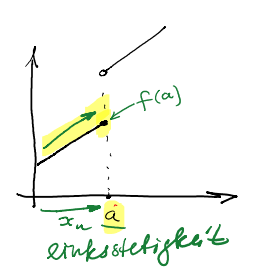 f(a)
xₙ a
linksstetigkeit